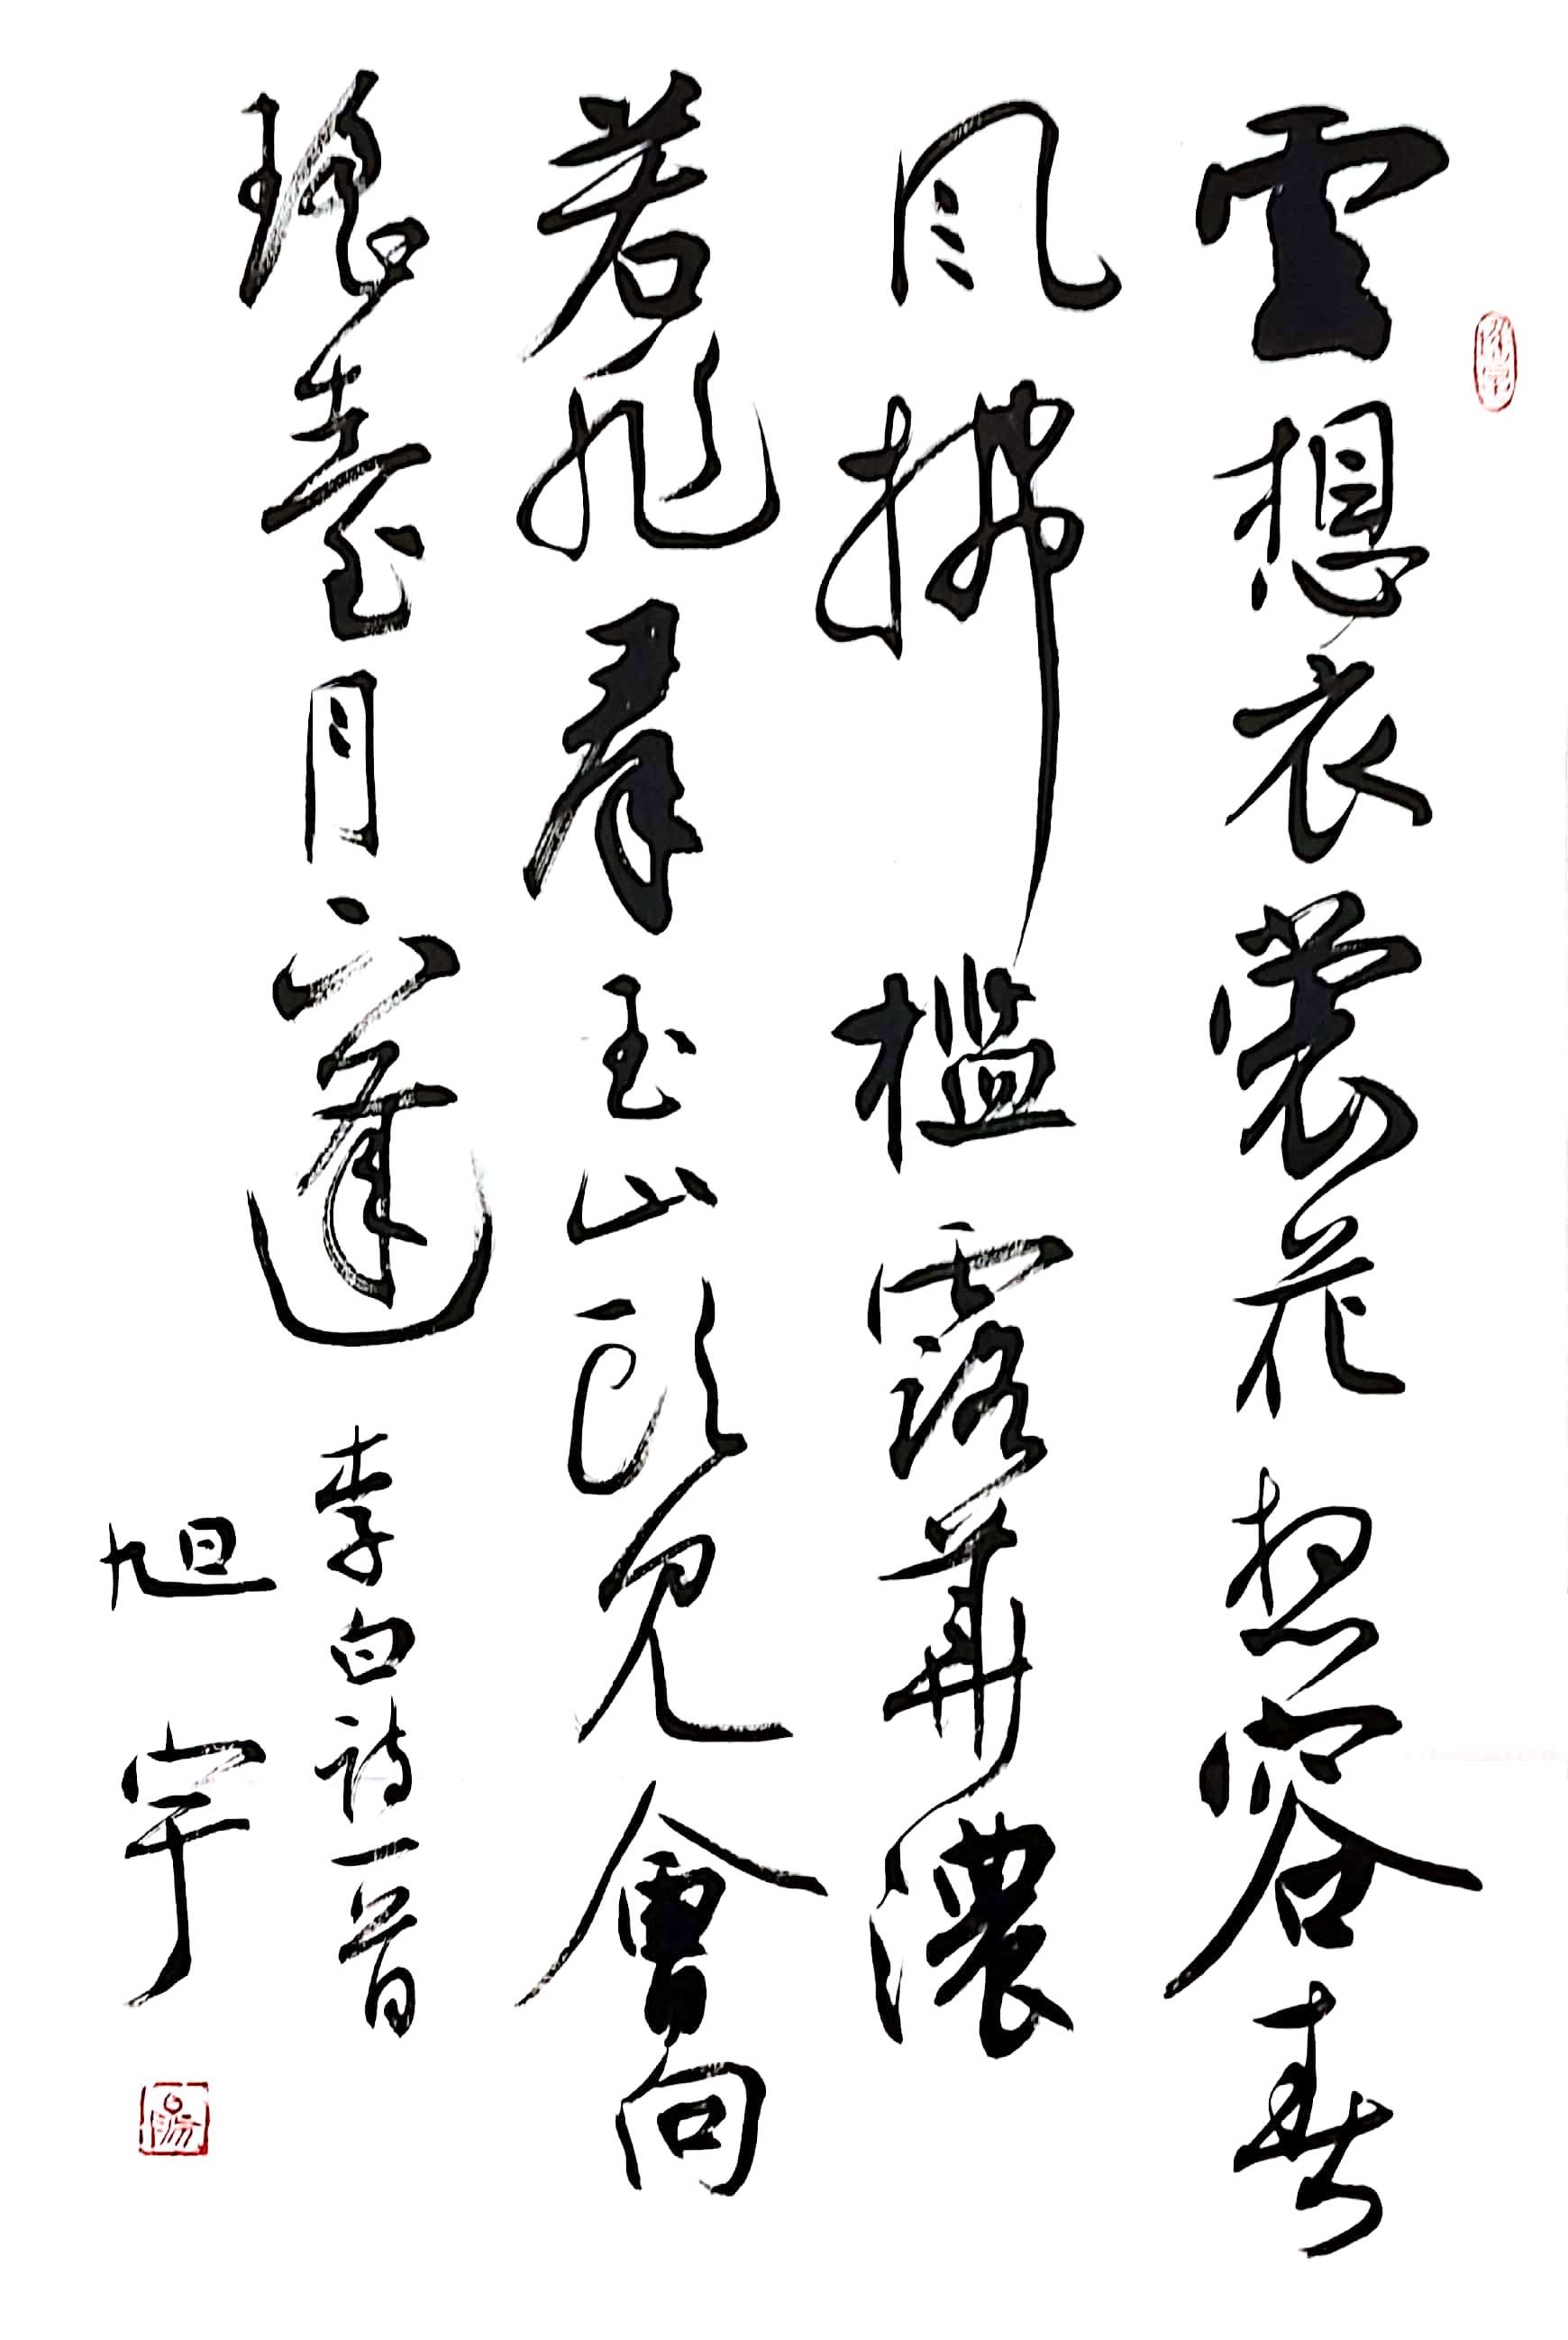 雲想衣裳花想容春
风拂檻露華濃
若非羣玉山頭見會向
瑤臺月下逢
李白诗一首
旭宇